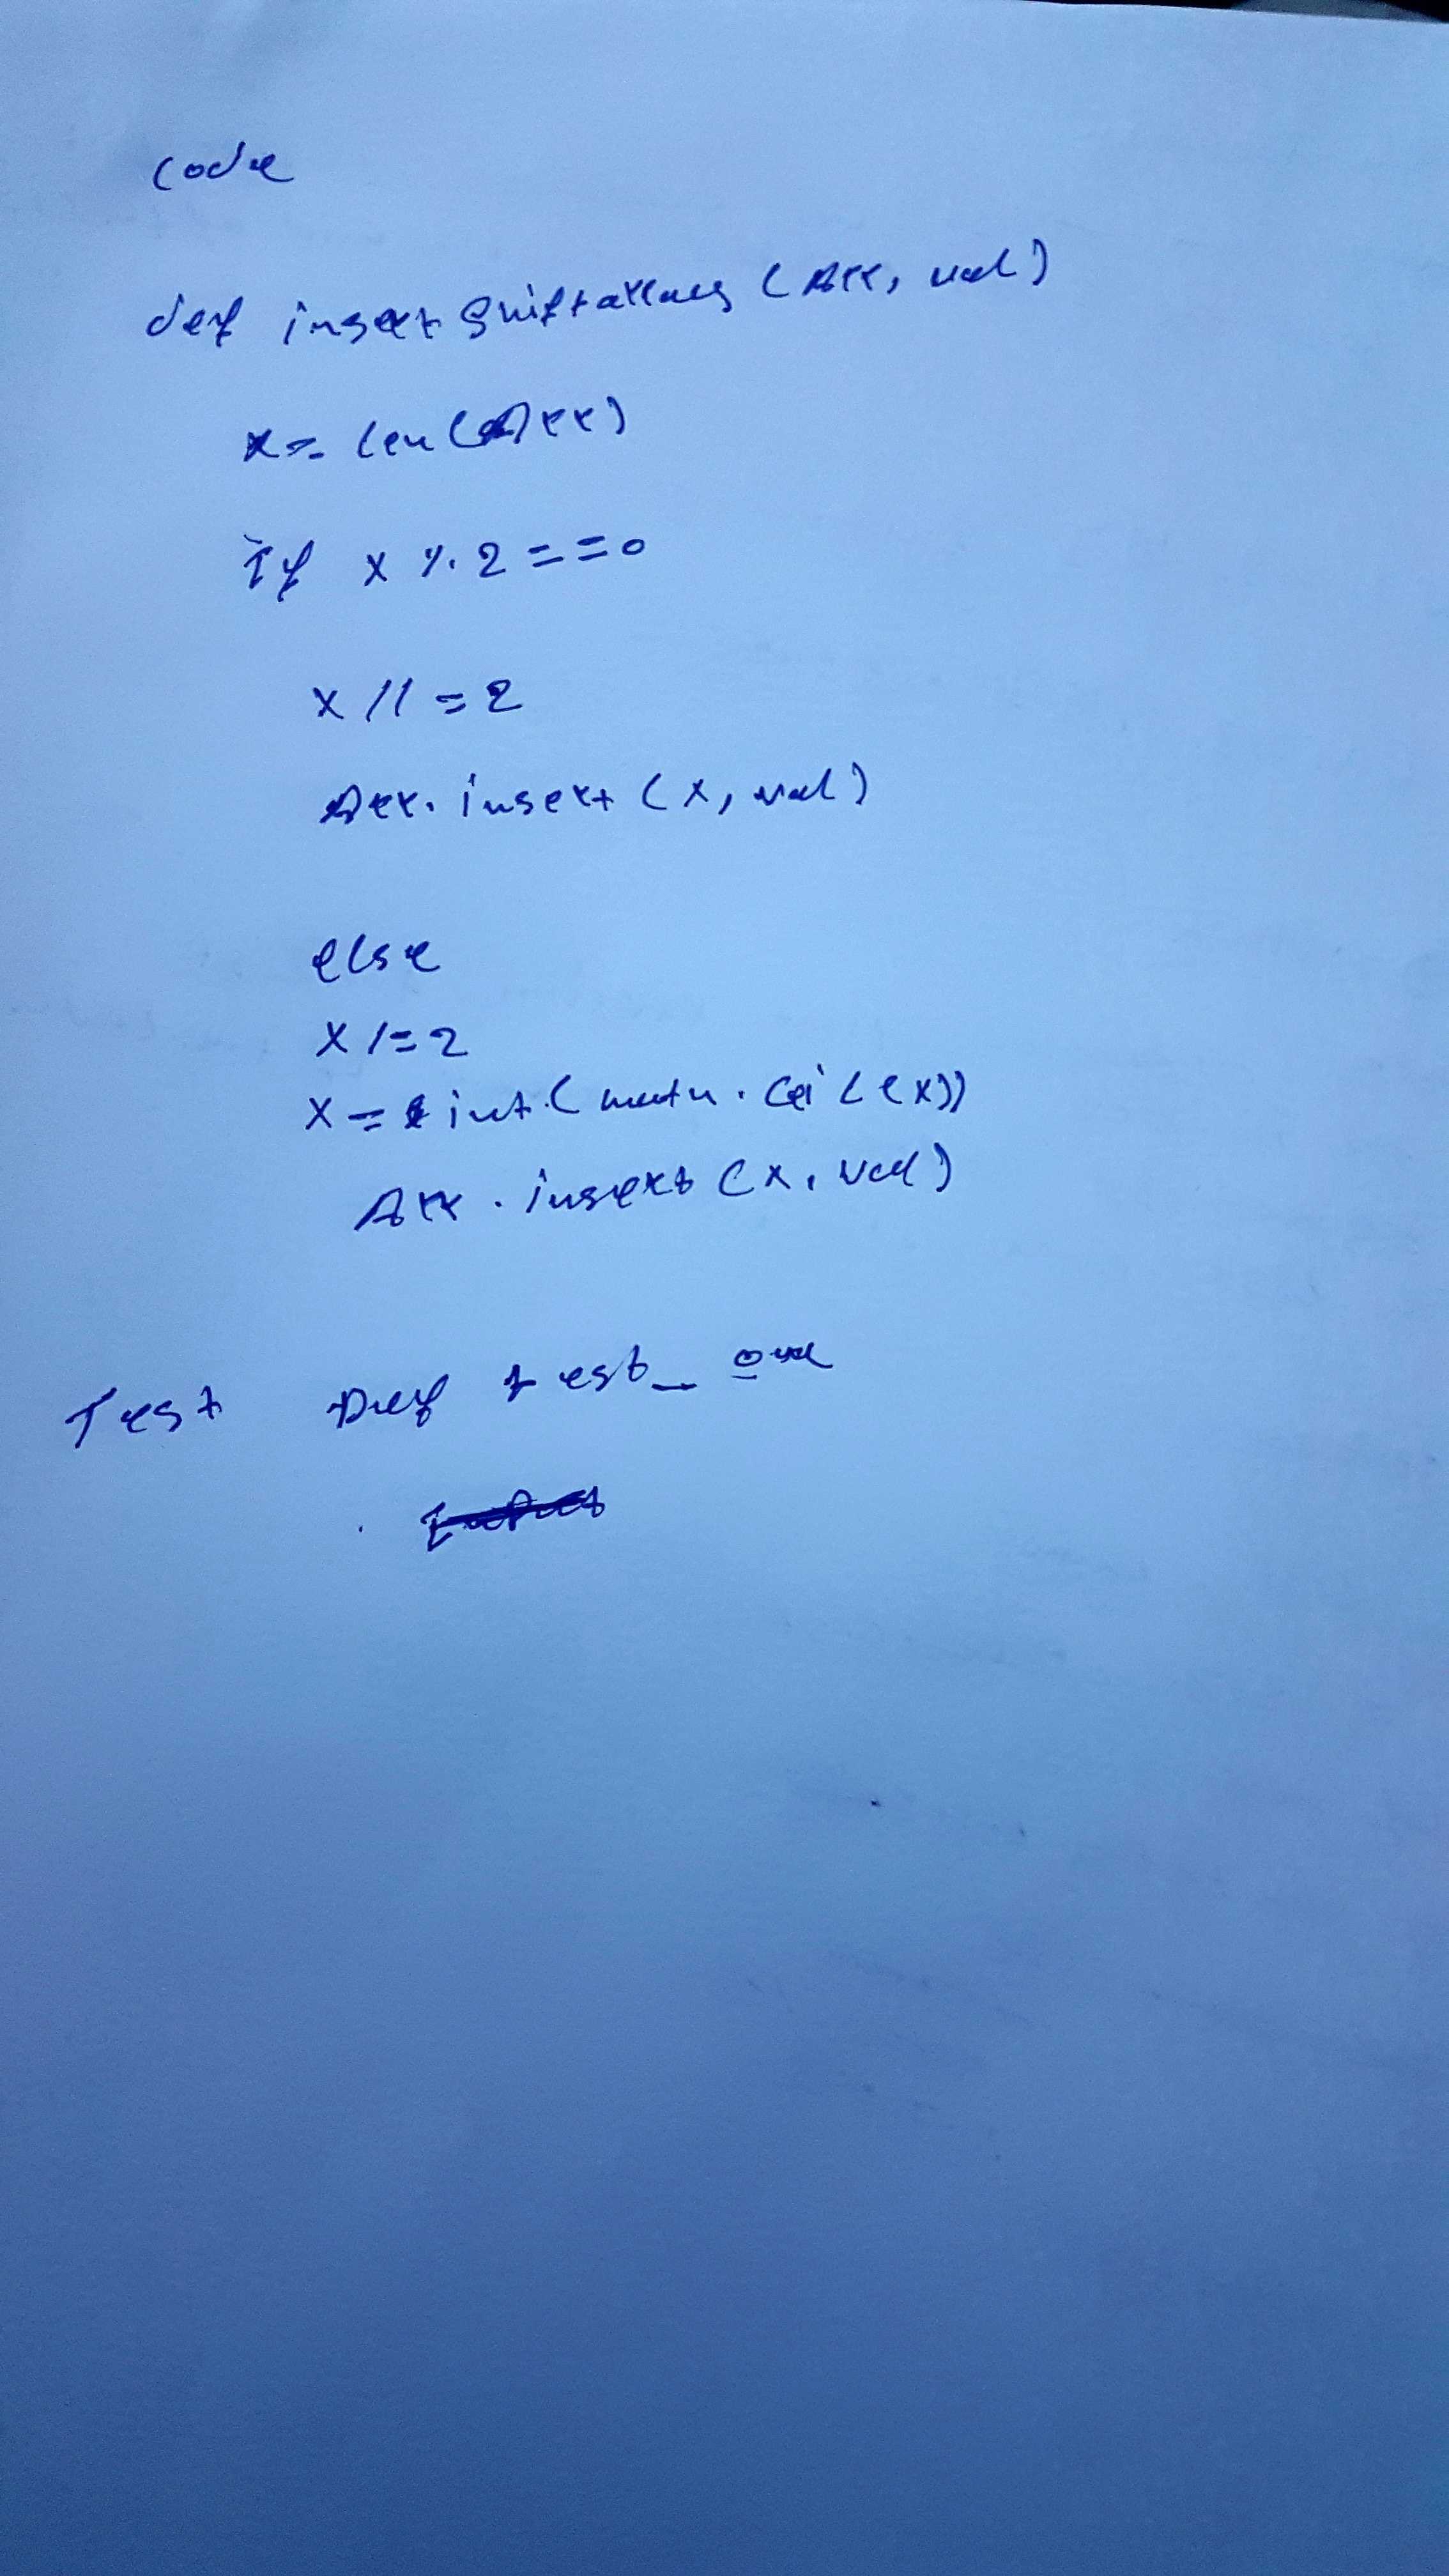 code
def insertshiftarray (Arr, val)
x = len (Arr)
if x % 2 == 0
x // = 2
Arr. insert (x, val)
else
x /= 2
x = int (math. ceil (x))
Arr. insert (x, val)
Test Def test_one